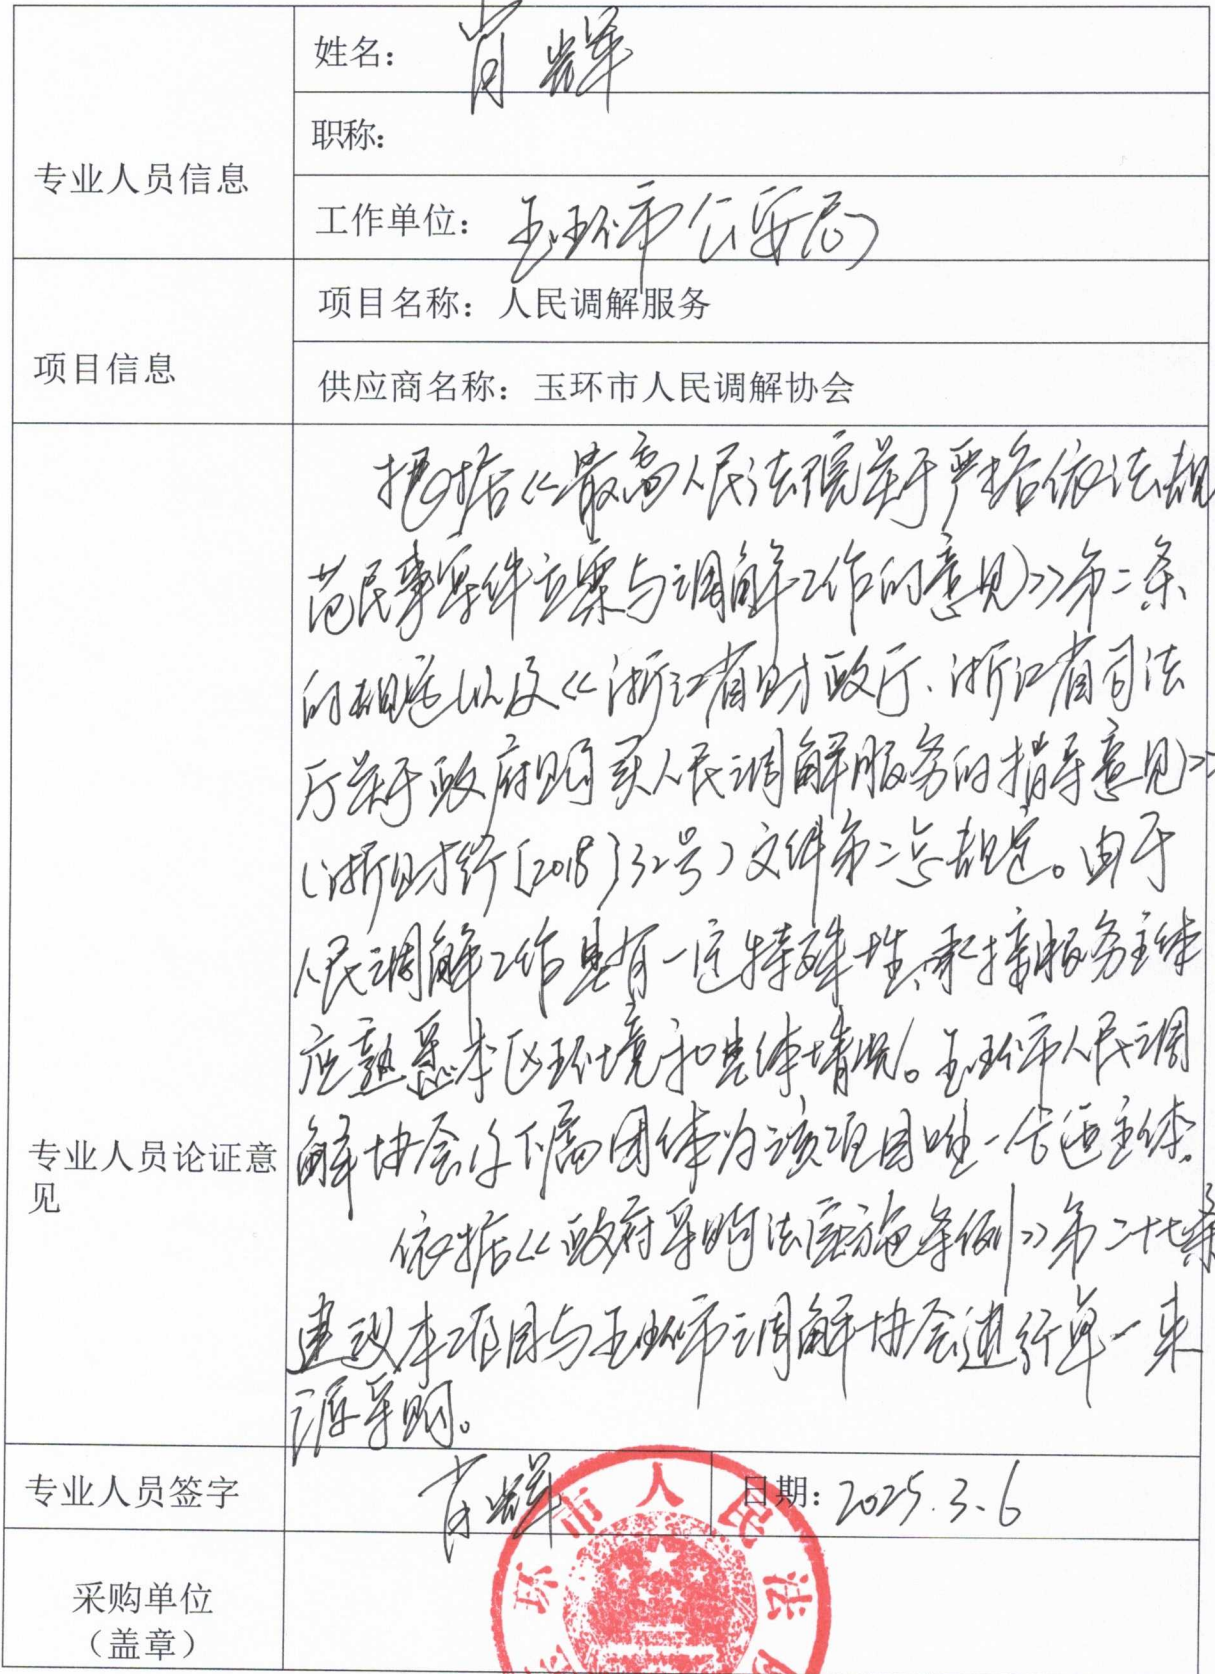 姓名：肖辉
职称：
专业人员信息
工作单位：玉环市公安局
项目名称：人民调解服务
项目信息
供应商名称：玉环市人民调解协会
根据《最高人民法院关于严格依法规
范民事案件立案与调解工作的意见》第二条
的规定以及《浙江省财政厅、浙江省司法
厅关于政府购买人民调解服务的指导意见》
（浙财行〔2018〕32号）文件第二点规定。由于
人民调解工作具有一定特殊性,承接服务主体
应熟悉本区环境和具体情况。玉环市人民调
解协会及下属团体为该项目唯一合适主体。
专业人员论证意
见
依据《政府采购法实施条例》第二十七条
建议本项目与玉环市调解协会进行单一来
源采购。
专业人员签字
肖辉
日期：2025.3.6
采购单位
（盖章）
环市人民法